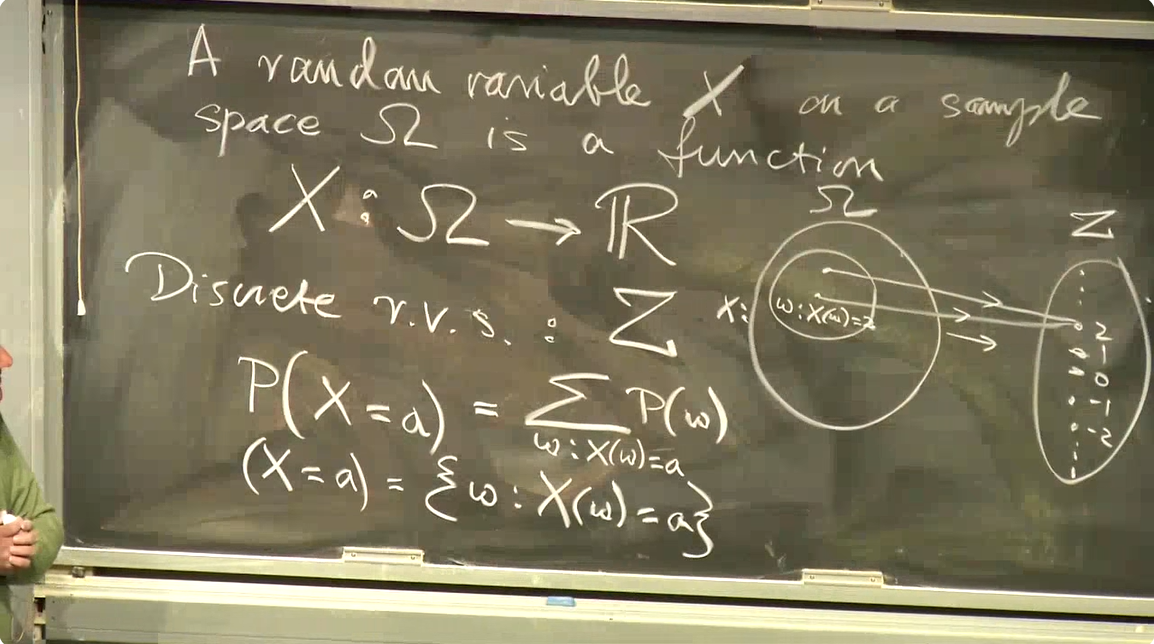 A random variable X on a sample
space Ω is a function
X : Ω → ℝ
Discrete r.v.s. : ℤ
P(X = a) = ∑ P(ω)
ω : X(ω) = a
(X = a) = {ω : X(ω) = a}
Ω
ℤ
X:
ω : X(ω) = 2
2
1
0
-1
-2